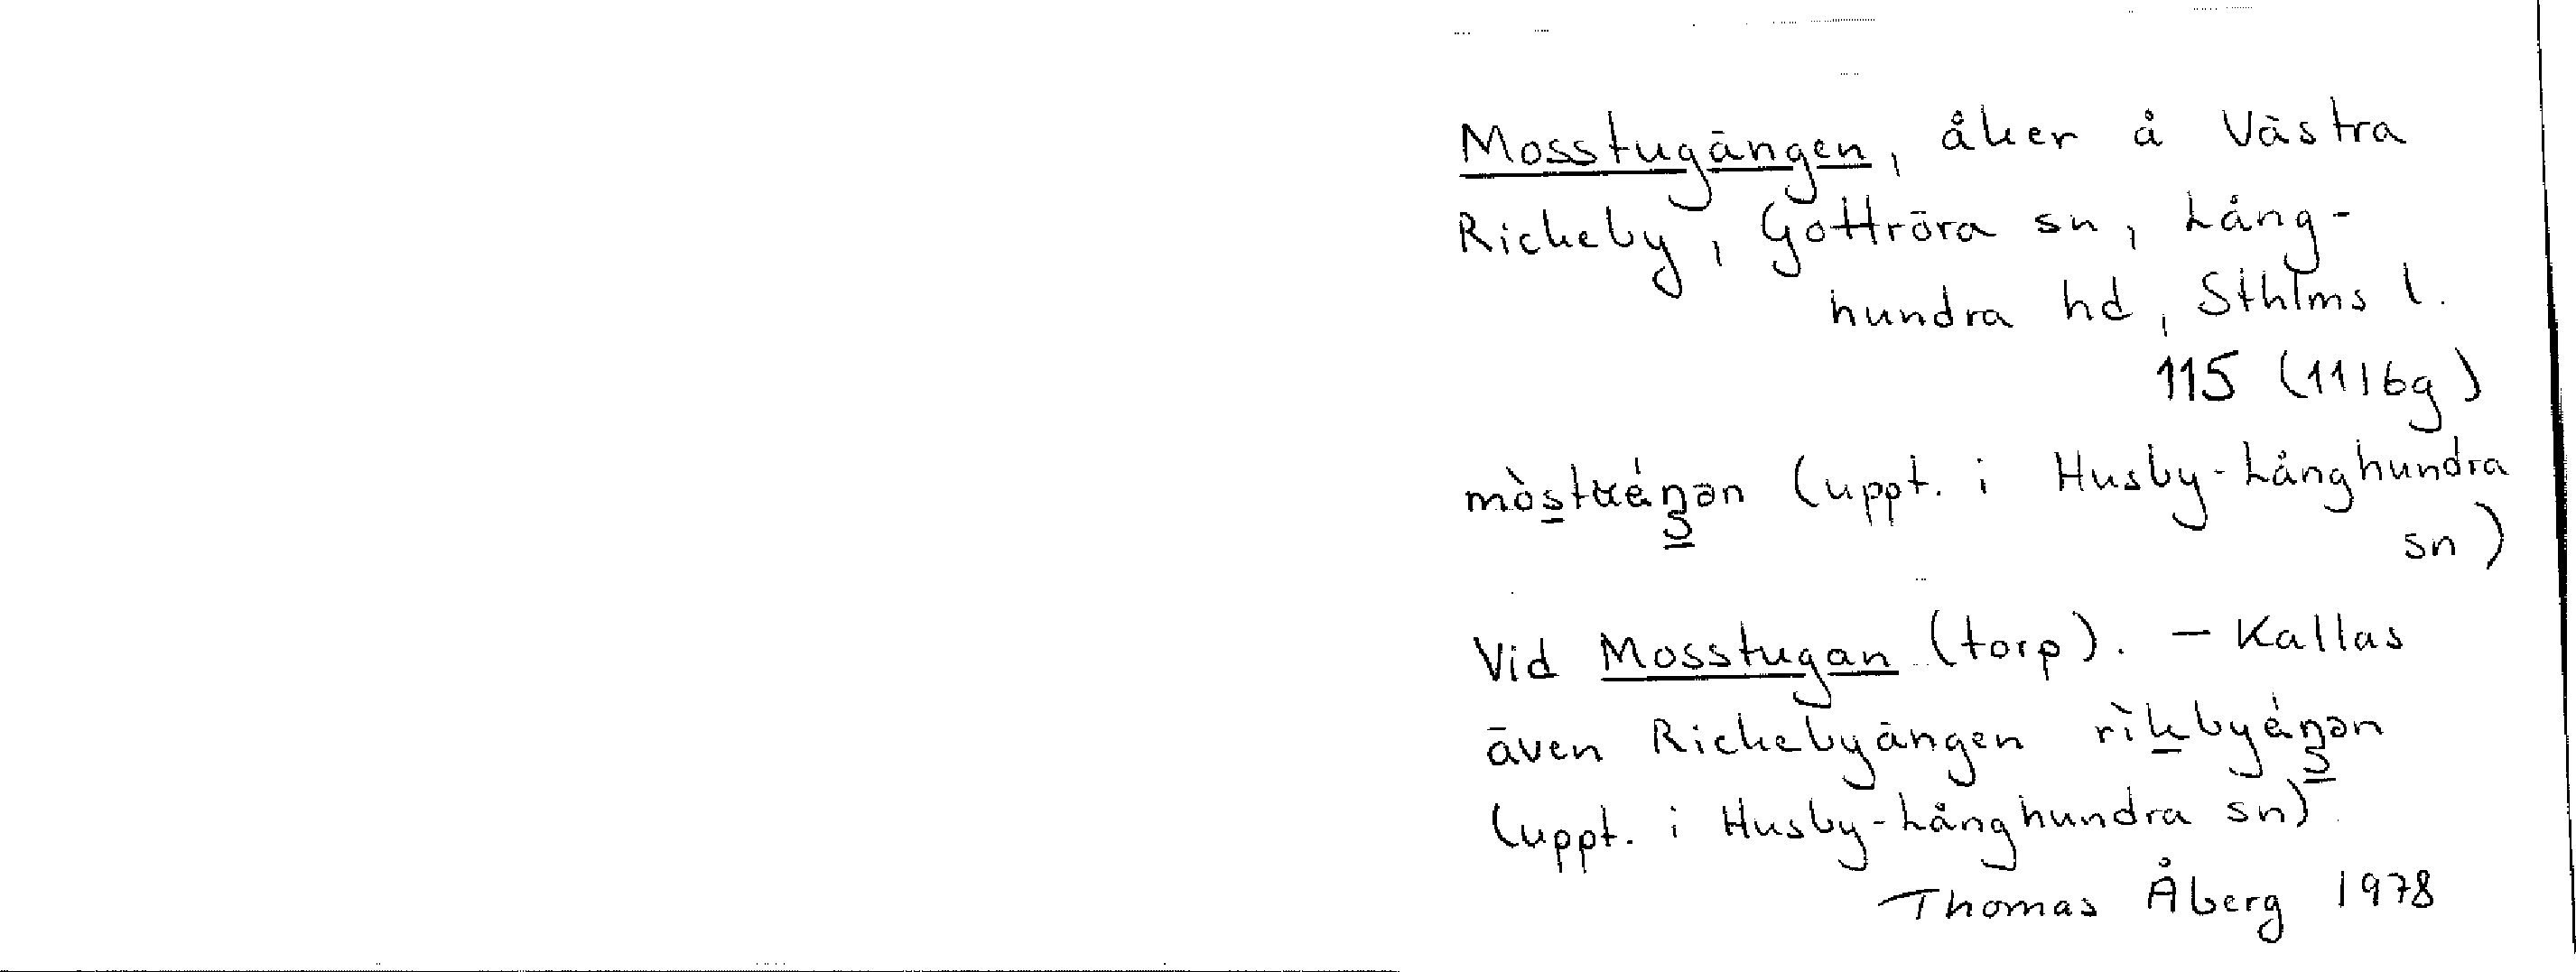 Mosstugängen, åker å Västra
Rickeby, Gottröra sn, Lång-
hundra hd, Sthlms l.
115 (11I6g)
(uppt. i Husby-Långhundra
sn)
Vid Mosstugan (torp). – Kallas
även Rickebyängen
(uppt. i Husby-Långhundra sn)
Thomas Åberg 1978